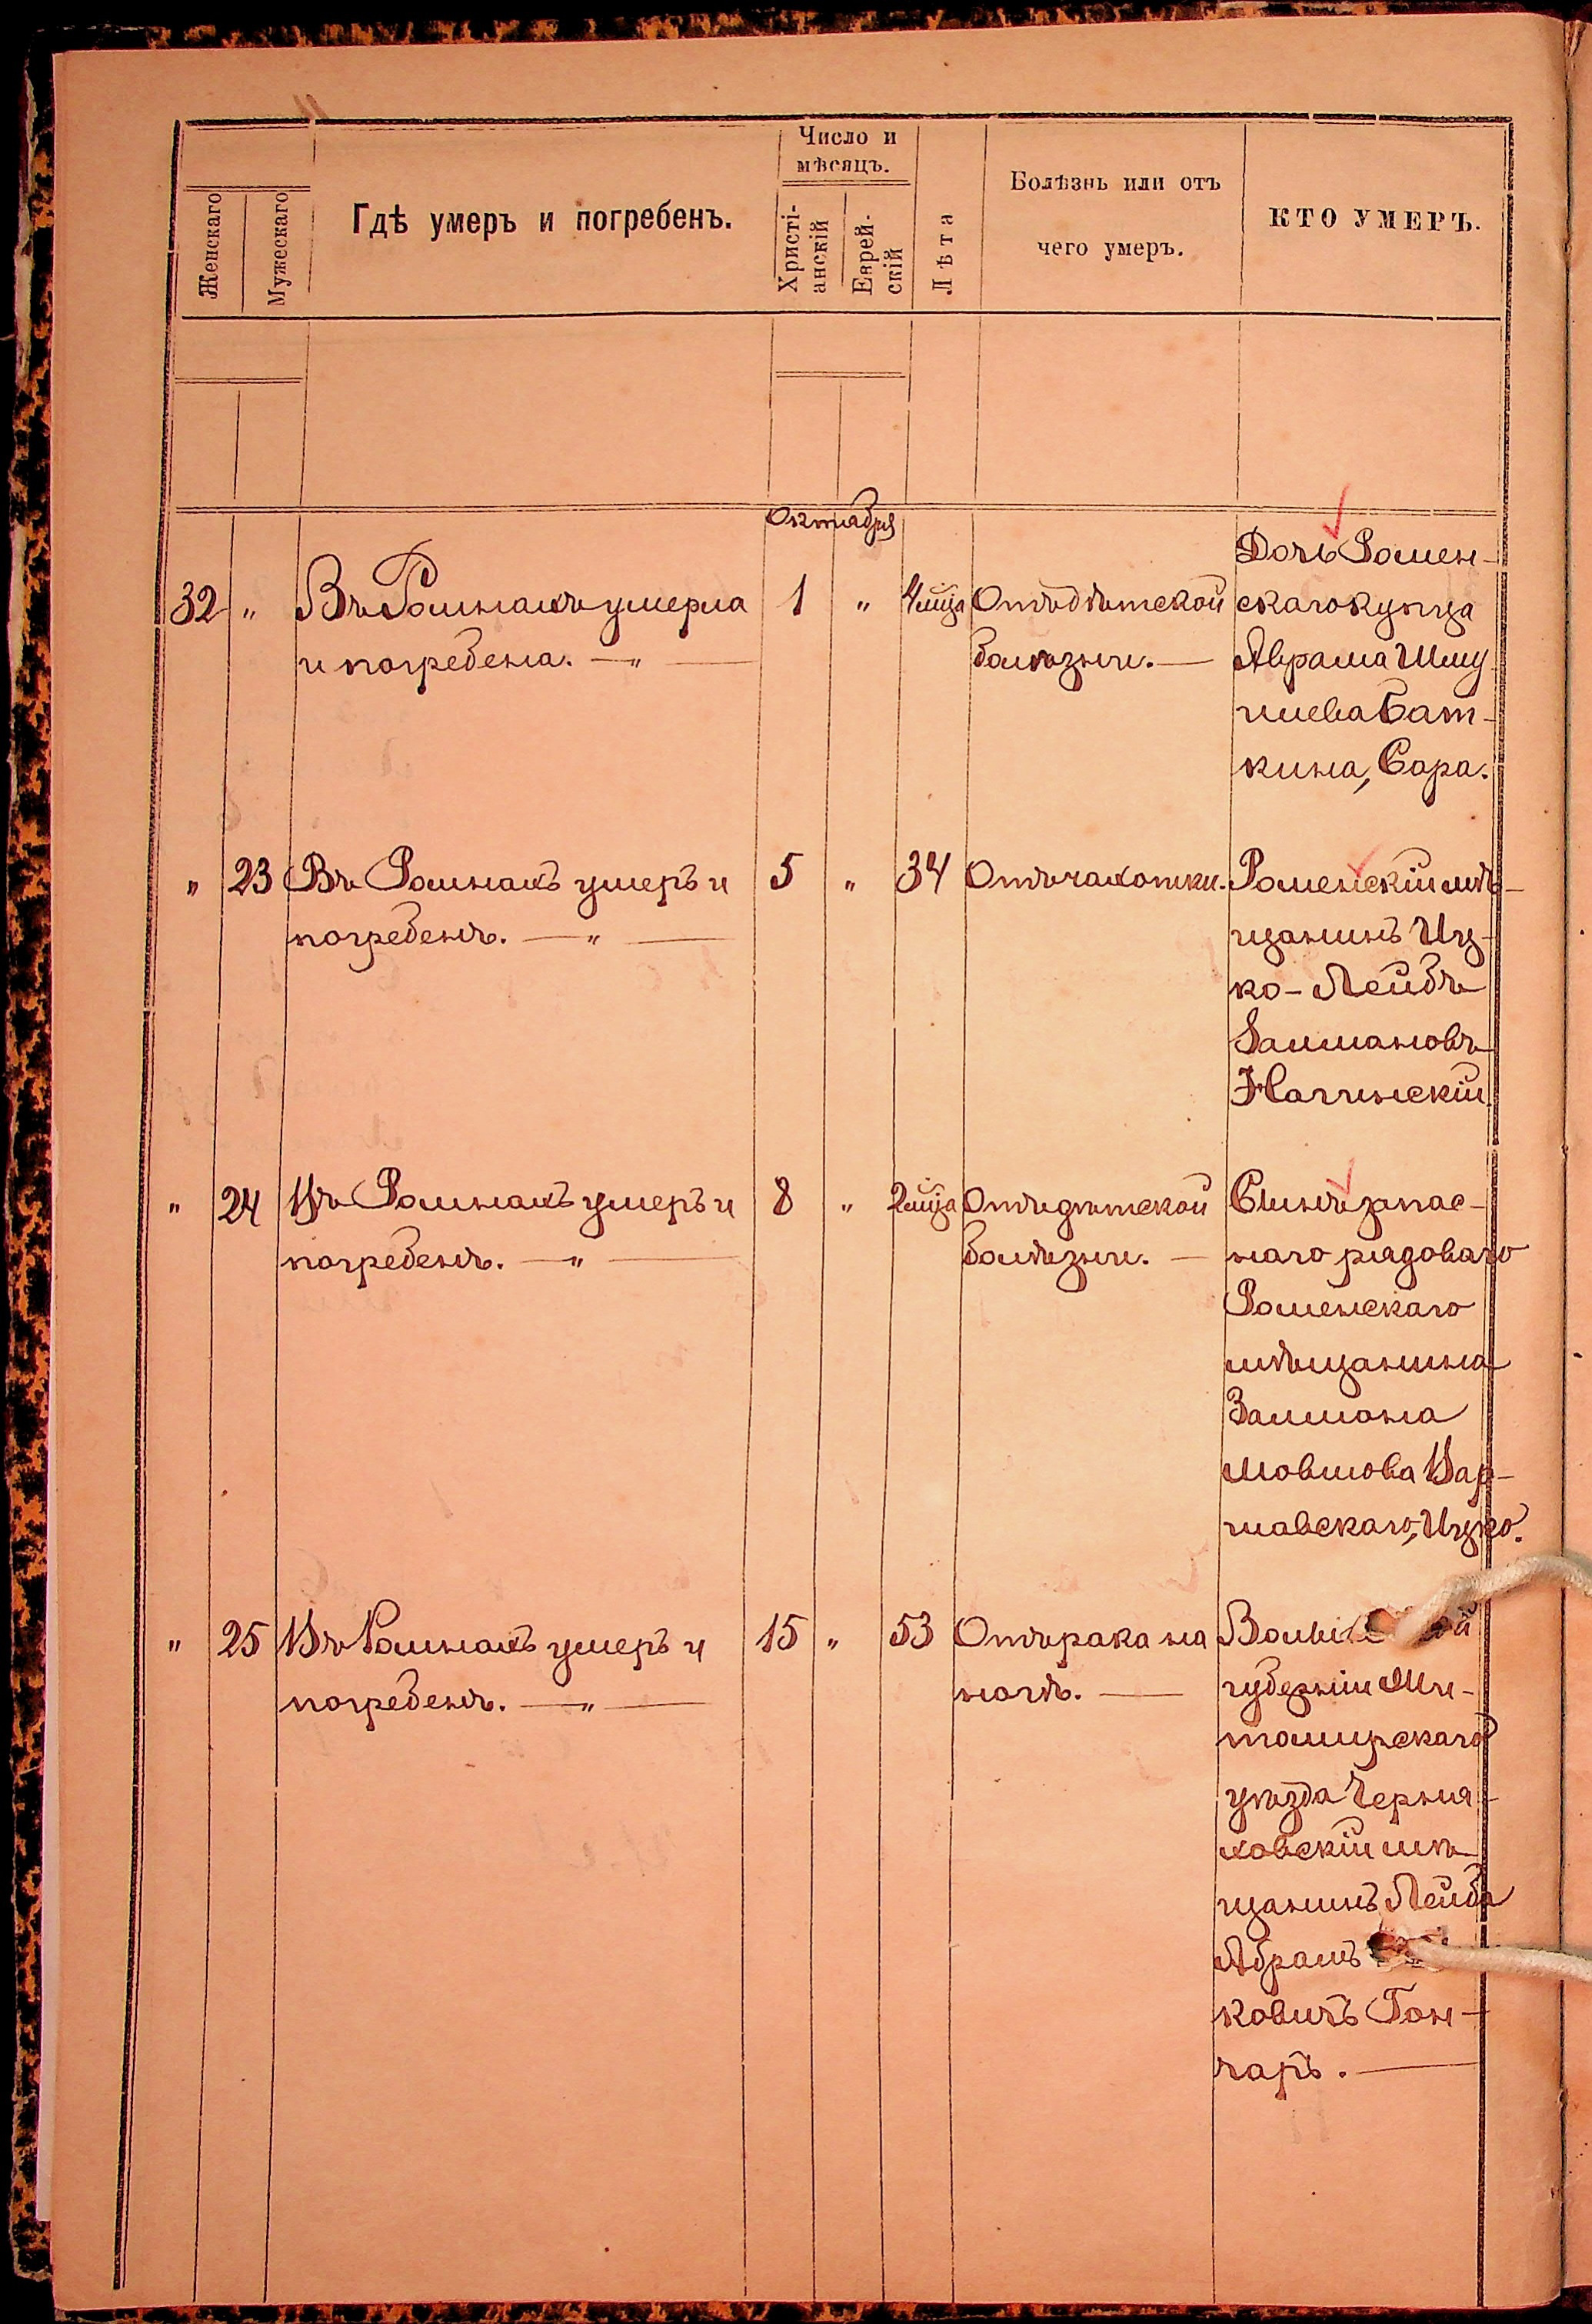 Женскаго
Мужескаго
Гдѣ умеръ и погребенъ.
Число и
мѣсяцъ.
Христі-
анскій
Еврей-
скій
Лѣта
Болѣзнь или отъ
чего умеръ.
КТО УМЕРЪ.
Октября
32 " Въ Ромнахъ умерла
и погребена. — " —
1 " 4 мца
Отъ дѣтской
болѣзни. —
Дочь Ромен-
скаго купца
Аврама Шму
илева Бат-
кина, Сара.
" 23 Въ Ромнахъ умеръ и
погребенъ. — " —
5 " 34
Отъ чахотки.
Роменскій мѣ-
щанинъ Иц-
ко-Лейбъ
Залмановъ
" 24 Въ Ромнахъ умеръ и
погребенъ. — " —
8 " 2 мца
Отъ дѣтской
болѣзни. —
Сынъ запас-
наго рядоваго
Роменскаго
мѣщанина
Залмана
Мовшова Вар-
шавскаго, Ицко.
" 25 Въ Ромнахъ умеръ и
погребенъ. — " —
15 " 53
Отъ рака на
ногѣ. —
губерніи Жи-
томирскаго
уѣзда Черня-
ховскій мѣ-
щанинъ Лейба
Абрамъ
ковичъ Гон-
чаръ. —